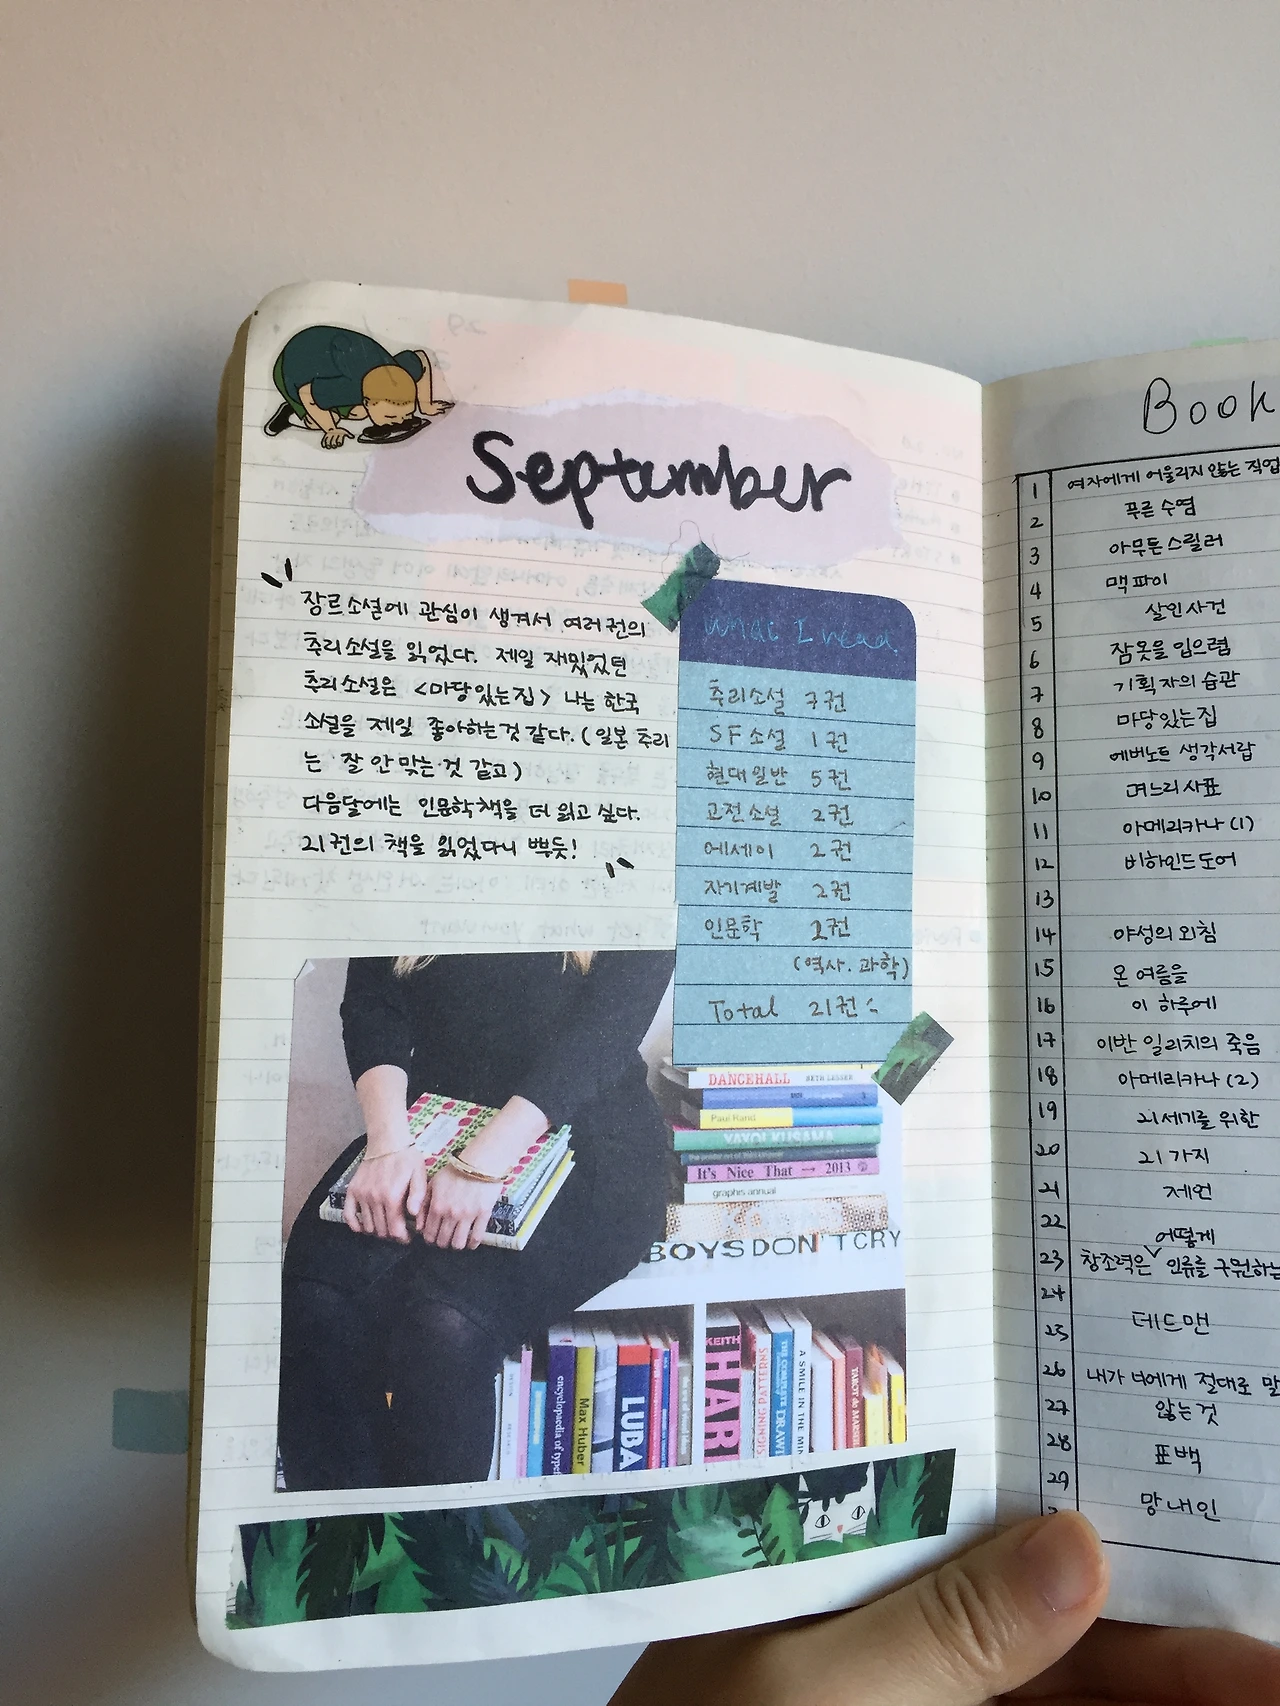 September
"
장르소설에 관심이 생겨서 여러권의
추리소설을 읽었다. 제일 재밌었던
추리소설은 <마당있는집> 나는 한국
소설을 제일 좋아하는것 같다. (일본 추리
는 잘 안 맞는 것 같고)
다음달에는 인문학책을 더 읽고 싶다.
21권의 책을 읽었다니 뿌듯!
"
What I read
추리소설 7권
SF소설 1권
현대일반 5권
고전소설 2권
에세이 2권
자기계발 2권
인문학 2권
(역사. 과학)
Total 21권
DANCEHALL BETH LESSER
Paul Rand
YAYOI KUSAMA
It's Nice That → 2013
graphis annual
BOYS DON'T CRY
encyclopaedia of type
Max Huber
LUBA
KEITH
HARI
SIGNING PATTERNS
THE COMPLETE DRAWI
A SMILE IN THE MIN
Book
1 여자에게 어울리지 않는 직업
2 푸른 수염
3 아무튼 스릴러
4 맥파이
5 살인사건
6 잠옷을 입으렴
7 기획자의 습관
8 마당있는집
9 에버노트 생각서랍
10 며느리 사표
11 아메리카나 (1)
12 비하인드도어
13
14 야성의 외침
15 온 여름을
16 이 하루에
17 이반 일리치의 죽음
18 아메리카나 (2)
19 21세기를 위한
20 21가지
21 제언
22 어떻게
23 창조력은 인류를 구원하는
24
25 데드맨
26 내가 너에게 절대로 말
27 않는것
28 표백
29 망내인